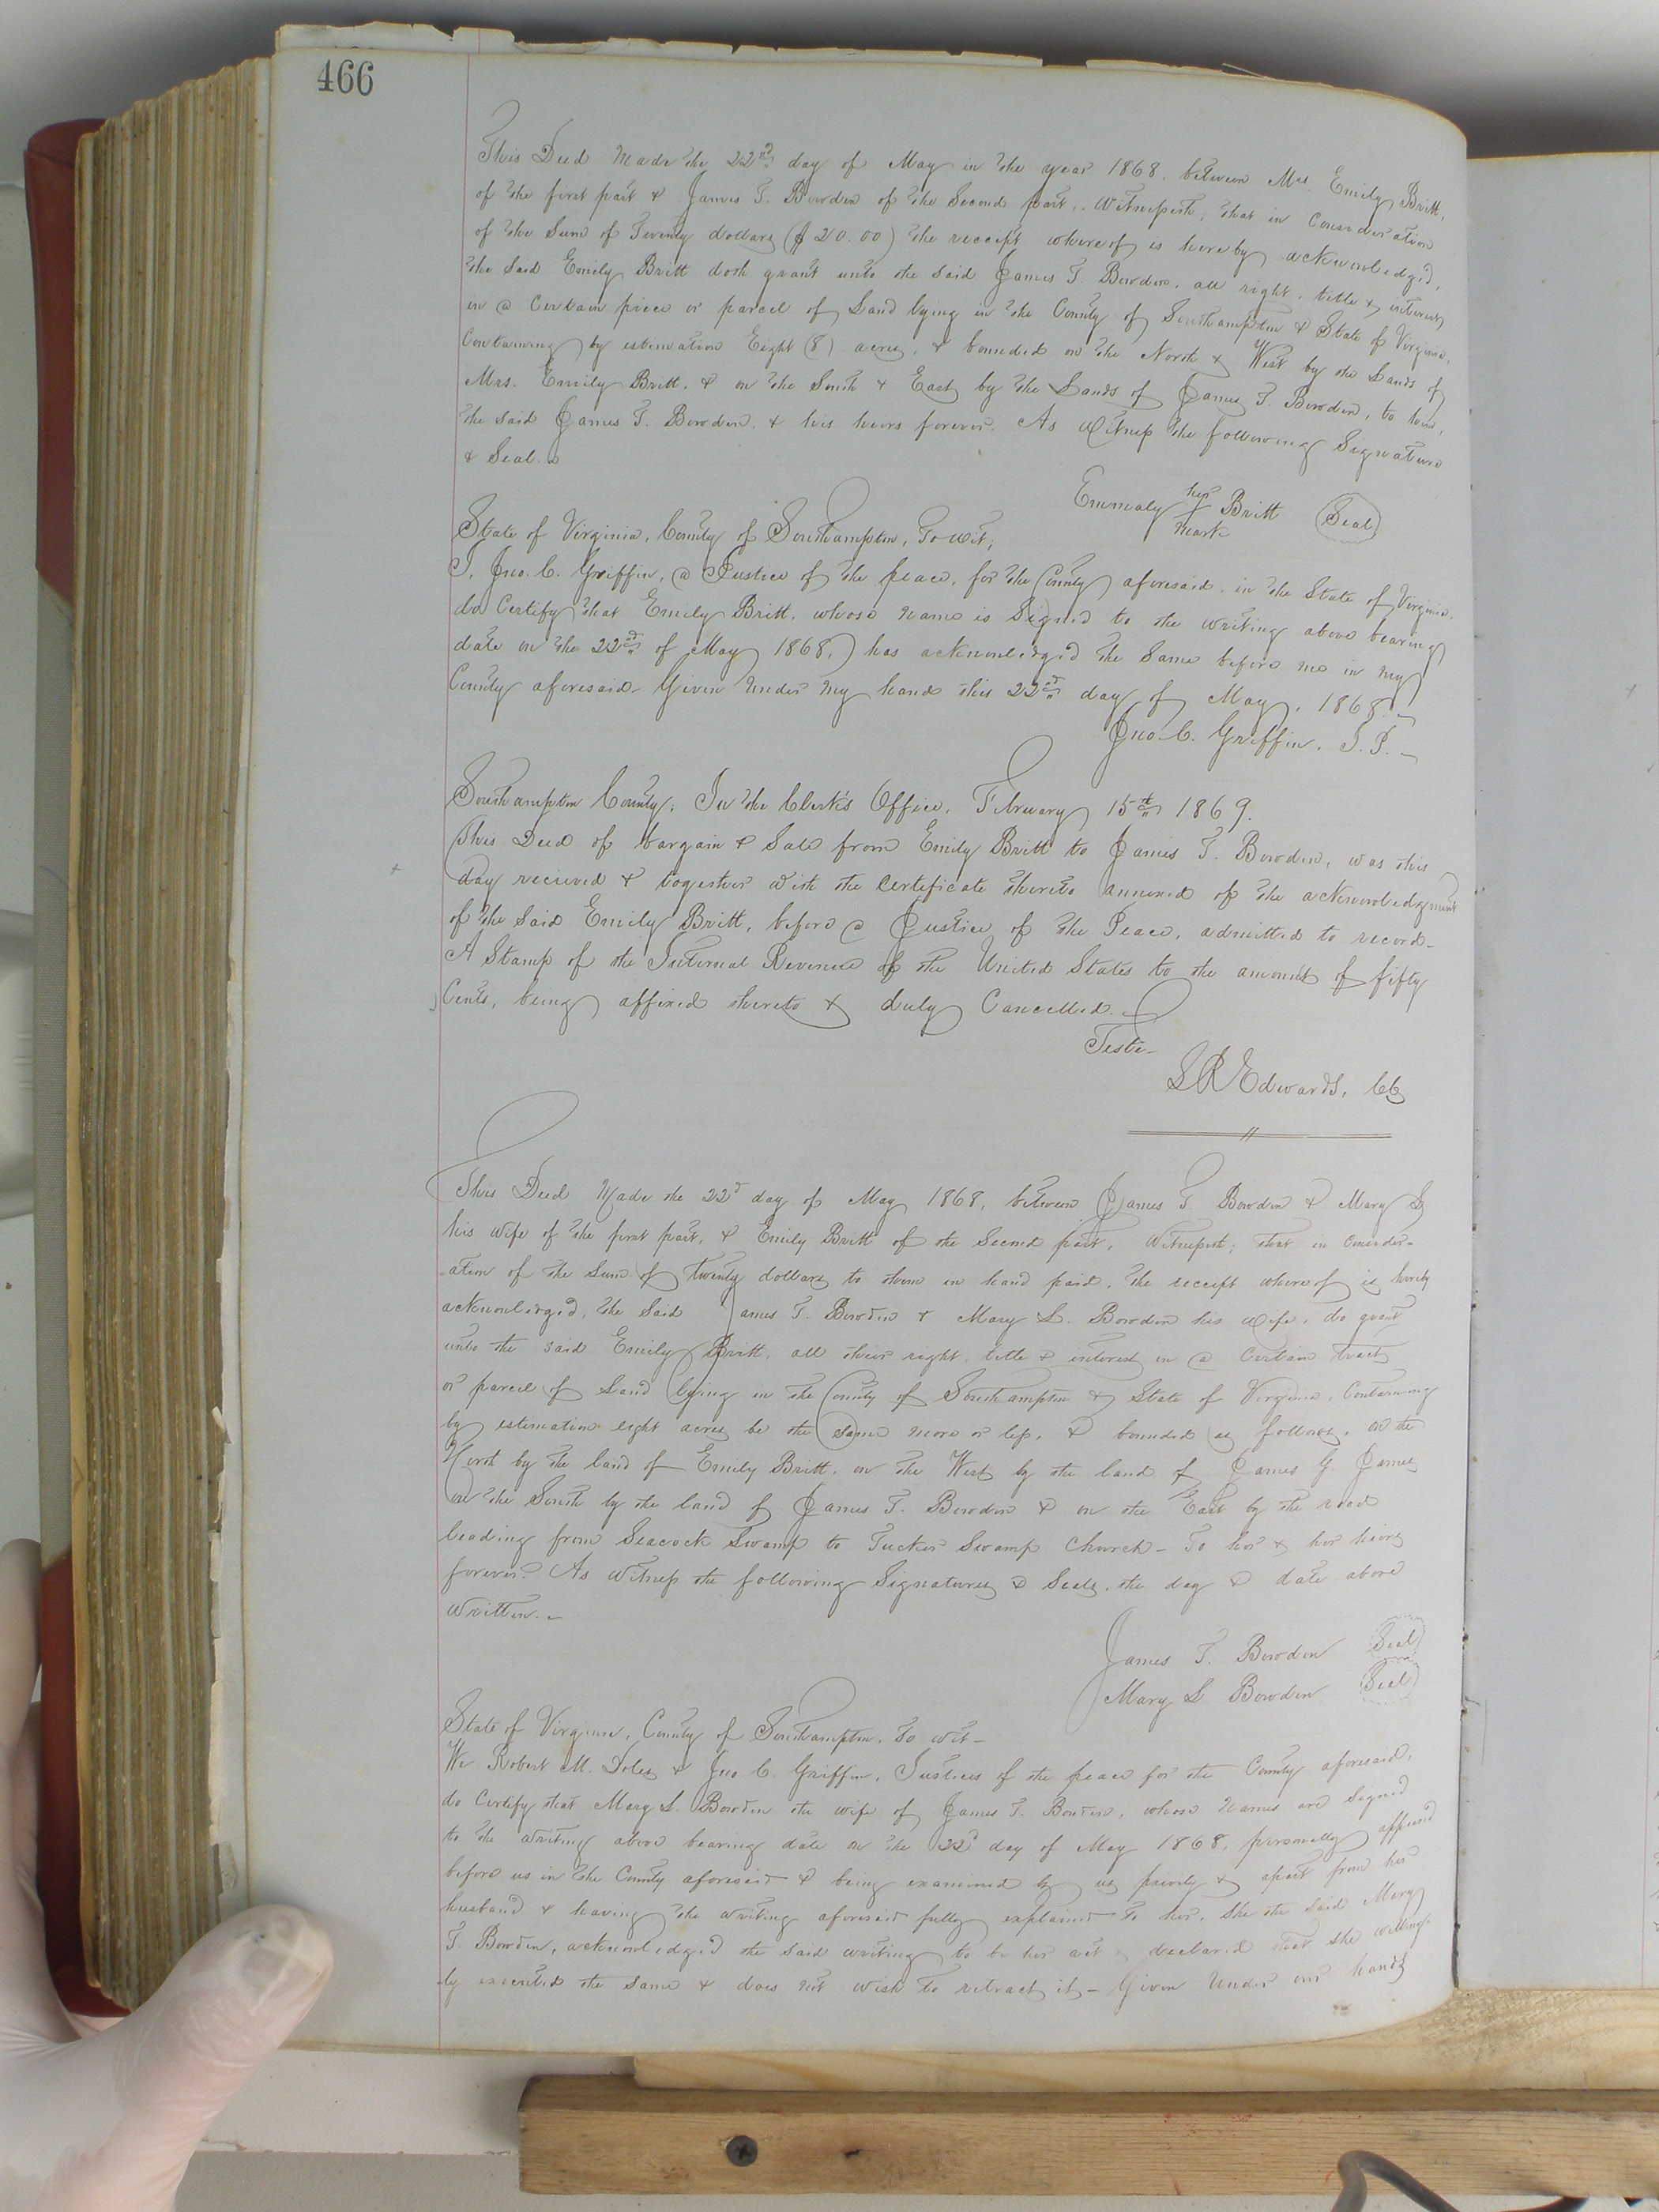 466
This Deed Made the 22nd day of May in the year 1868. between Mrs. Emily Britt,
of the first part & James T. Bowden of the Second part,. Witnesseth, that in Consideration
of the Sum of Twenty dollars ($20.00) the receipt whereof is hereby acknowledged,
the Said Emily Britt doth grant unto the said James T. Bowden, all right, title & interest
in a Certain piece or parcel of Land lying in the County of Southampton & State of Virginia,
Containing by estimation Eight (8) acres, & bounded on the North & West by the Lands of
Mrs. Emily Britt. & on the South & East by the Lands of James T. Bowden, to him,
the said James T. Bowden, & his heirs forever. As Witness the following Signature
& Seal.
Emmaly her Britt (Seal)
mark
State of Virginia, County of Southampton, To wit;
I, Jno. C. Griffin, a Justice of the peace, for the County aforesaid, in the State of Virginia.
do Certify that Emily Britt, whose name is Signed to the writing above bearing
date on the 22nd of May 1868,) has acknowledged the Same before me in my
County aforesaid. Given Under My hand this 22nd day of May, 1868.
Jno. C. Griffin. J. P.
Southampton County; In the Clerk's Office, February 15th 1869.
This Deed of bargain & Sale from Emily Britt to James T. Bowden, was this
day recieved & together with the Certificate thereto annexed of the acknowledgment
of the Said Emily Britt, before a Justice of the Peace, admitted to record-
A Stamp of the Internal Revenue of the United States to the amount of fifty
Cents, being affixed thereto & duly Cancelled.
Teste-
L R Edwards, CC
This Deed Made the 22d day of May 1868, between James T. Bowden & Mary L
his wife of the first part, & Emily Britt of the Second part, Witnesseth; that in Consider-
-ation of the Sum of twenty dollars to them in hand paid, the receipt whereof is hereby
acknowledged, the Said James T. Bowden & Mary L. Bowden his wife, do grant
unto the said Emily Britt, all their right, title & interest in a Certain tract
or parcel of Land lying in the County of Southampton & State of Virginia, Containing
by estimation eight acres be the same more or less, & bounded as follows, on the
North by the land of Emily Britt, on the West by the land of James G. James
on the South by the land of James T. Bowden & on the East by the road
leading from Seacock Swamp to Tucker Swamp Church- To her & her heirs
forever. As Witness the following Signatures & Seals, the day & date above
Written.-
James T. Bowden (Seal)
Mary L. Bowden (Seal)
State of Virginia, County of Southampton, to wit-
We Robert M. Doles & Jno. C. Griffin, Justices of the peace for the County aforesaid,
do Certify that Mary L. Bowden the wife of James T. Bowden, whose Names are Signed
to the writing above bearing date on the 22d day of May 1868, personally appeared
before us in the County aforesaid & being examined by us privily & apart from her
husband & having the writing aforesaid fully explained to her, She the Said Mary
T. Bowden, acknowledged the said writing to be her act & declared that she willing-
ly executed the same & does not wish to retract it- Given Under our hands